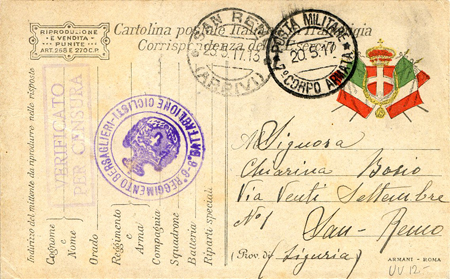 RIPRODUZIONE
E VENDITA
PUNITE
ART. 265 E 270 C.P.
Cartolina postale Italiana in Franchigia
Corrispondenza del R. Esercito
SAN REMO
17.13
(ARRIVI)
POSTA MILITARE
20.5.17
7° CORPO ARMATA
VERIFICATO
PER CENSURA
8° REGIMENTO BERSAGLIERI-CICLISTI
BATTAGLIONE
Indirizzo del mittente da riprodurre nella risposta
Cognome
e
Nome
Grado
Reggimento
e
Arma
Compagnia
Squadrone
Batteria
Riparti speciali
A Signora
Chiarina Bosio
Via Venti Settembre
N° 1
San-Remo
(Prov. di Liguria)
ARMANI - ROMA